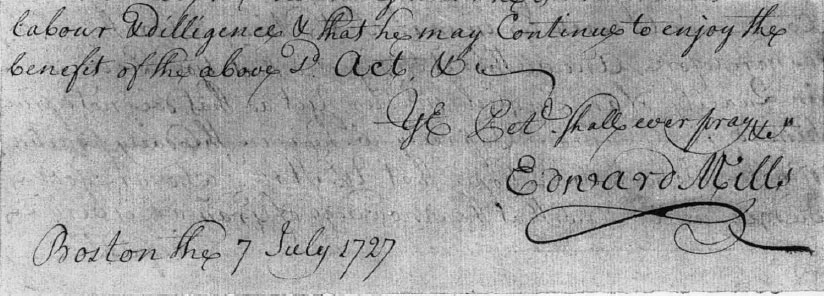 labour & dilligence & that he may Continue to enjoy the
benefit of the above sd. Act, &c
Ye Petr. shall ever pray &c
Edward Mills
Boston the 7 July 1727